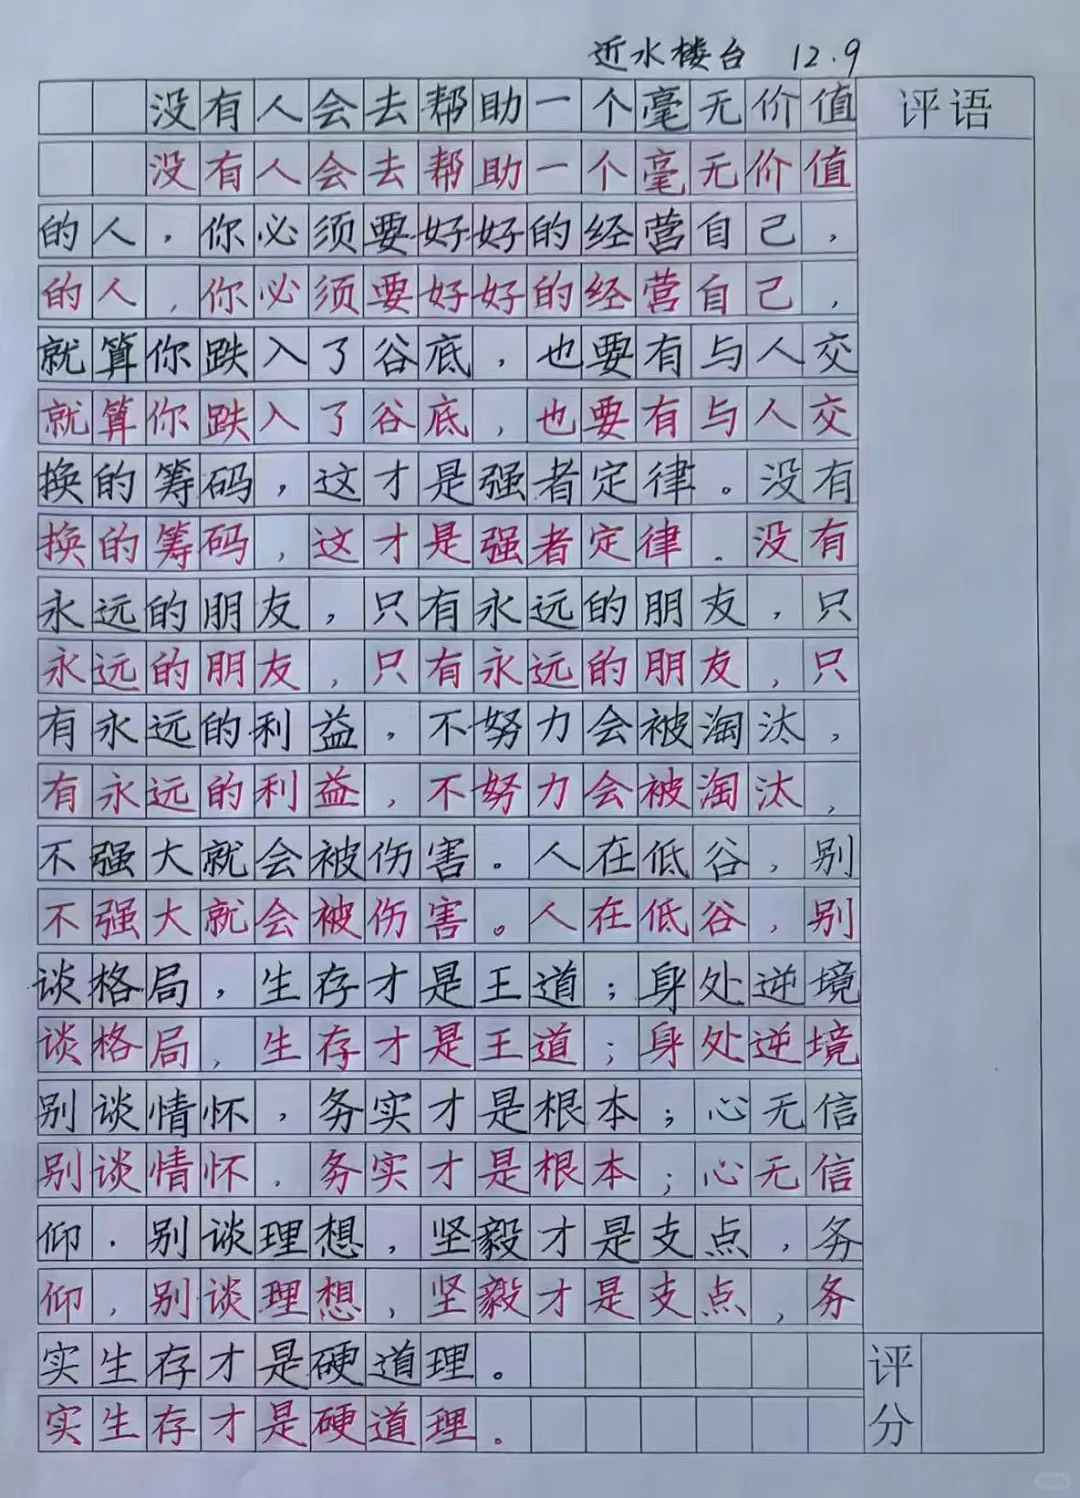 近水楼台 12.9
没有人会去帮助一个毫无价值
评语
没有人会去帮助一个毫无价值
的人，你必须要好好的经营自己，
的人，你必须要好好的经营自己，
就算你跌入了谷底，也要有与人交
就算你跌入了谷底，也要有与人交
换的筹码，这才是强者定律。没有
换的筹码，这才是强者定律。没有
永远的朋友，只有永远的朋友，只
永远的朋友，只有永远的朋友，只
有永远的利益，不努力会被淘汰，
有永远的利益，不努力会被淘汰，
不强大就会被伤害。人在低谷，别
不强大就会被伤害。人在低谷，别
谈格局，生存才是王道；身处逆境
谈格局，生存才是王道；身处逆境
别谈情怀，务实才是根本；心无信
别谈情怀，务实才是根本；心无信
仰．别谈理想，坚毅才是支点，务
仰，别谈理想，坚毅才是支点，务
实生存才是硬道理。
实生存才是硬道理。
评分
小红书